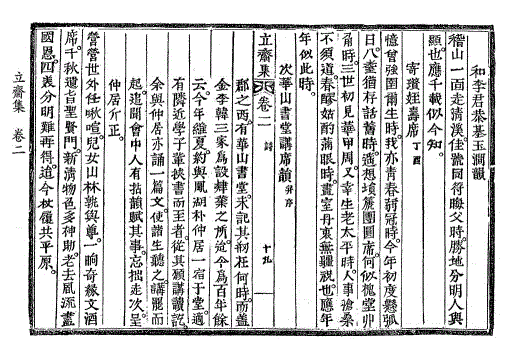 和李君恭棊玉澗韻
稽山一面走淸溪佳號同符晦父時。勝地分明人與
顯也應千載似今知。
寄瓊姪壽席 丁酉
憶曾強圉爾生時。我亦靑春弱冠時。今年初度懸弧
日八耋猶存話舊時。遐想瓊筵團圓席。何似槐堂丱
角時。三世初見華甲周。又幸生老太平時。人事滄桑
不須道。春醪姑酌滿眼時。畫室丹衷無疆祝。也應年
年似此時。
立齋集 卷二 詩 十九
次華山書堂講席韻 幷序
郡之西有華山書堂。未記其刱在何時。而蓋
金李韓三家爲設肄業之所。迄今爲百年餘
云。今年維夏。約與鳳湖朴仲居一宿于堂。適
有隣近學子輩挾書而至者。從其願講讀訖。
余與仲居亦誦一篇文。使諸生聽之。講罷而
起。這間會中人有拈韻賦其事。忘拙走次。呈
仲居斤正。
營營世外任啾喧。兒女山林孰與尊。一晌奇緣文酒
席。千秋遺旨聖賢門。新淸物色多神助。老去風流盡
國恩。四美分明難再得。追今杖履共平原。
立齋集 卷二